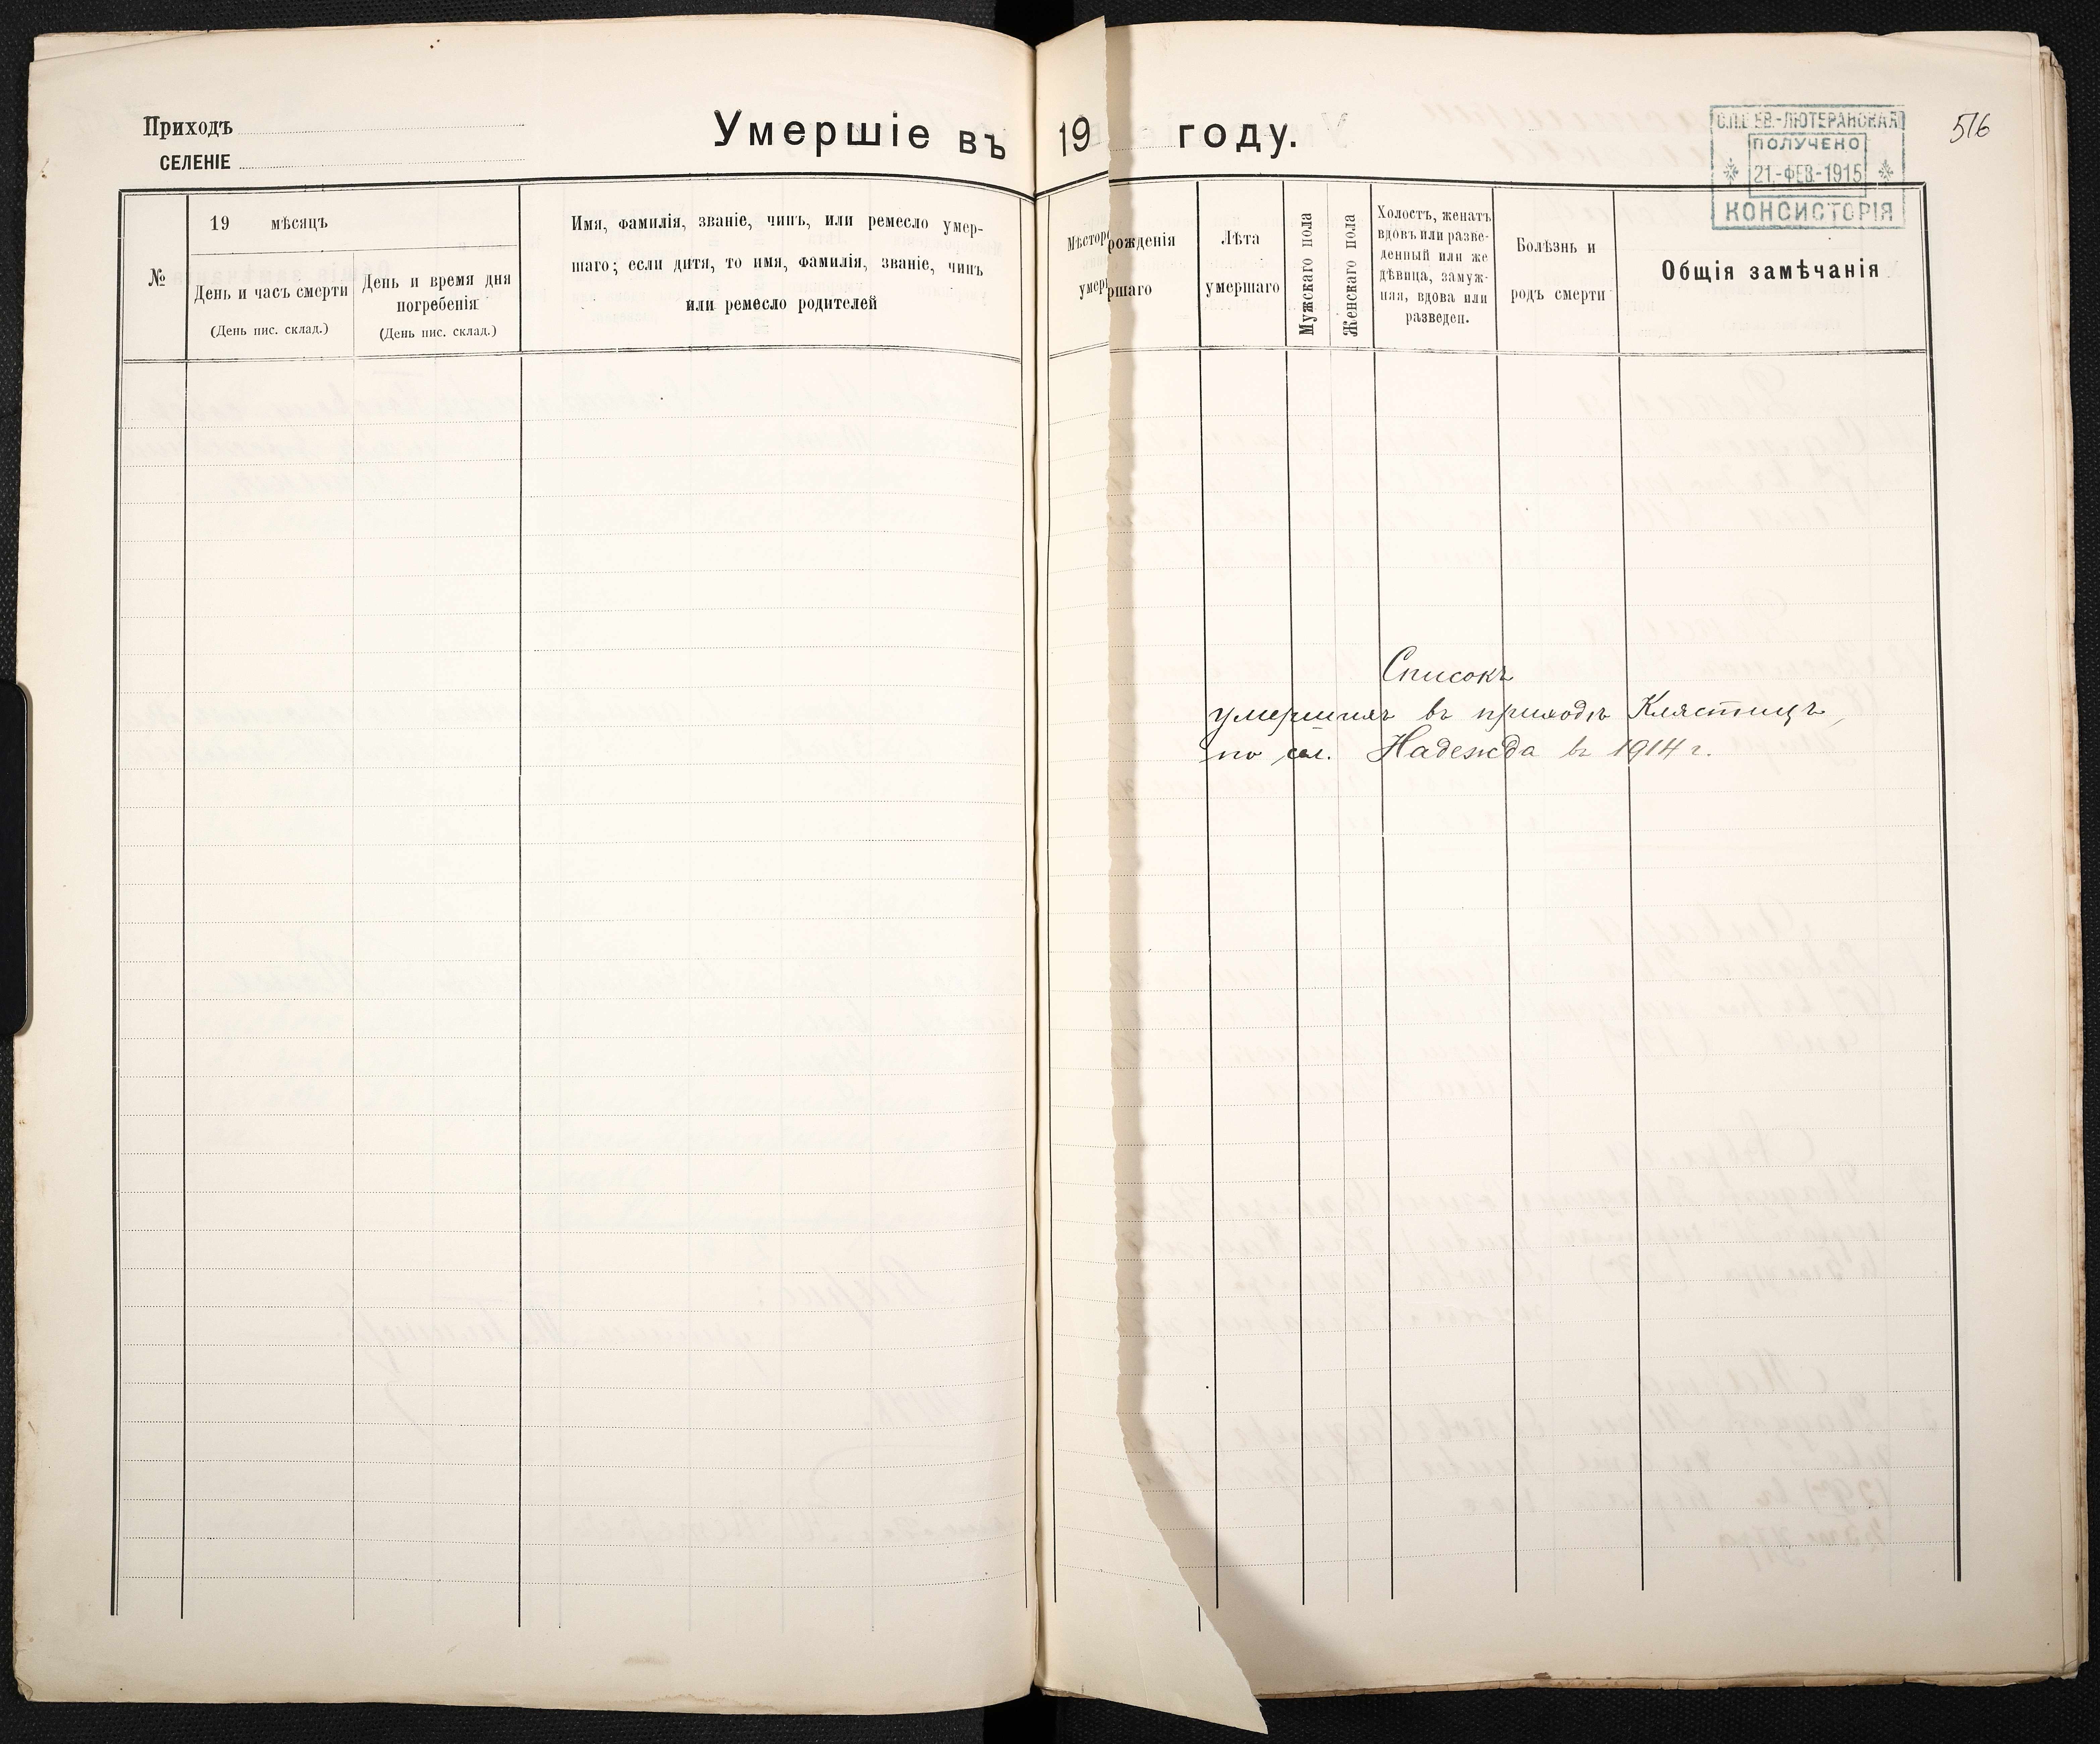 Приходъ
СЕЛЕНІЕ
Умершіе въ 19 году.
С.П.Б ЕВ.-ЛЮТЕРАНСКАЯ
ПОЛУЧЕНО
21.-ФЕВ.-1915
КОНСИСТОРІЯ
516
№
19 мѣсяцъ
День и часъ смерти
(День пис. склад.)
День и время дня
погребенія
(День пис. склад.)
Имя, фамилія, званіе, чинъ, или ремесло умер-
шаго; если дитя, то имя, фамилія, званіе, чинъ
или ремесло родителей
Мѣсторожденія
умершаго
Лѣта
умершаго
Мужскаго пола
Женскаго пола
Холостъ, женатъ
вдовъ или разве-
денный или же
дѣвица, замуж-
няя, вдова или
разведен.
Болѣзнь и
родъ смерти
Общія замѣчанія
Списокъ
умершихъ въ приходѣ Клястицъ,
по сел. Надежда въ 1914 г.